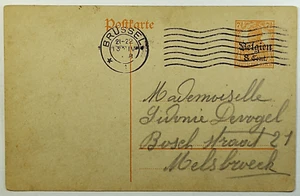 Postkarte
BRÜSSEL
Belgien
8 Cent.
Mademoiselle
Sidonie Devogel
Bosch straat 21
Melsbroeck